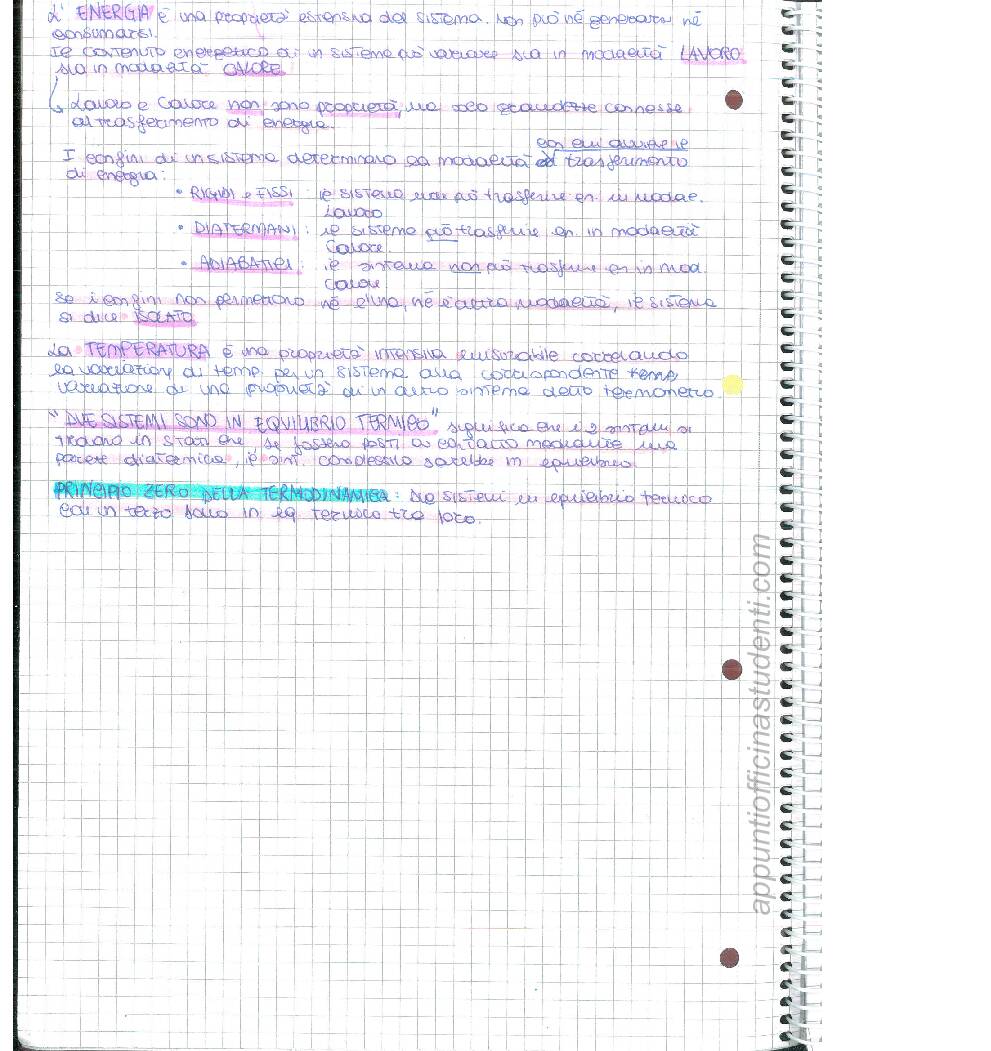 L'ENERGIA è una proprietà estensiva del sistema. Non può né generarsi né
consumarsi.
Il contenuto energetico di un sistema può variare sia in modalità LAVORO
sia in modalità CALORE.
Lavoro e Calore non sono proprietà, ma solo grandezze connesse
al trasferimento di energia.
con cui avviene il
I confini di un sistema determinano la modalità trasferimento
di energia:
• RIGIDI e FISSI: il sistema non può trasferire en. in modal.
Lavoro
• DIATERMANI: il sistema può trasferire en. in modalità
Calore.
• ADIABATICI: il sistema non può trasferire en in mod.
Calore
Se i confini non permettono né l'una, né l'altra modalità, il sistema
si dice ISOLATO
La TEMPERATURA è una proprietà intensiva misurabile correlando
la variazion di temp. per un sistema alla corrispondente temp
variazione di una proprietà di un altro sistema detto termometro.
"DUE SISTEMI SONO IN EQUILIBRIO TERMICO" significa che i 2 sistemi si
trovano in stati che se fossero posti a contatto mediante una
parete diatermica, il sist. complessivo sarebbe in equilibrio
PRINCIPIO ZERO DELLA TERMODINAMICA: Due sistemi in equilibrio termico
con un terzo sono in eq termico tra loro.
appuntiofficinastudenti.com